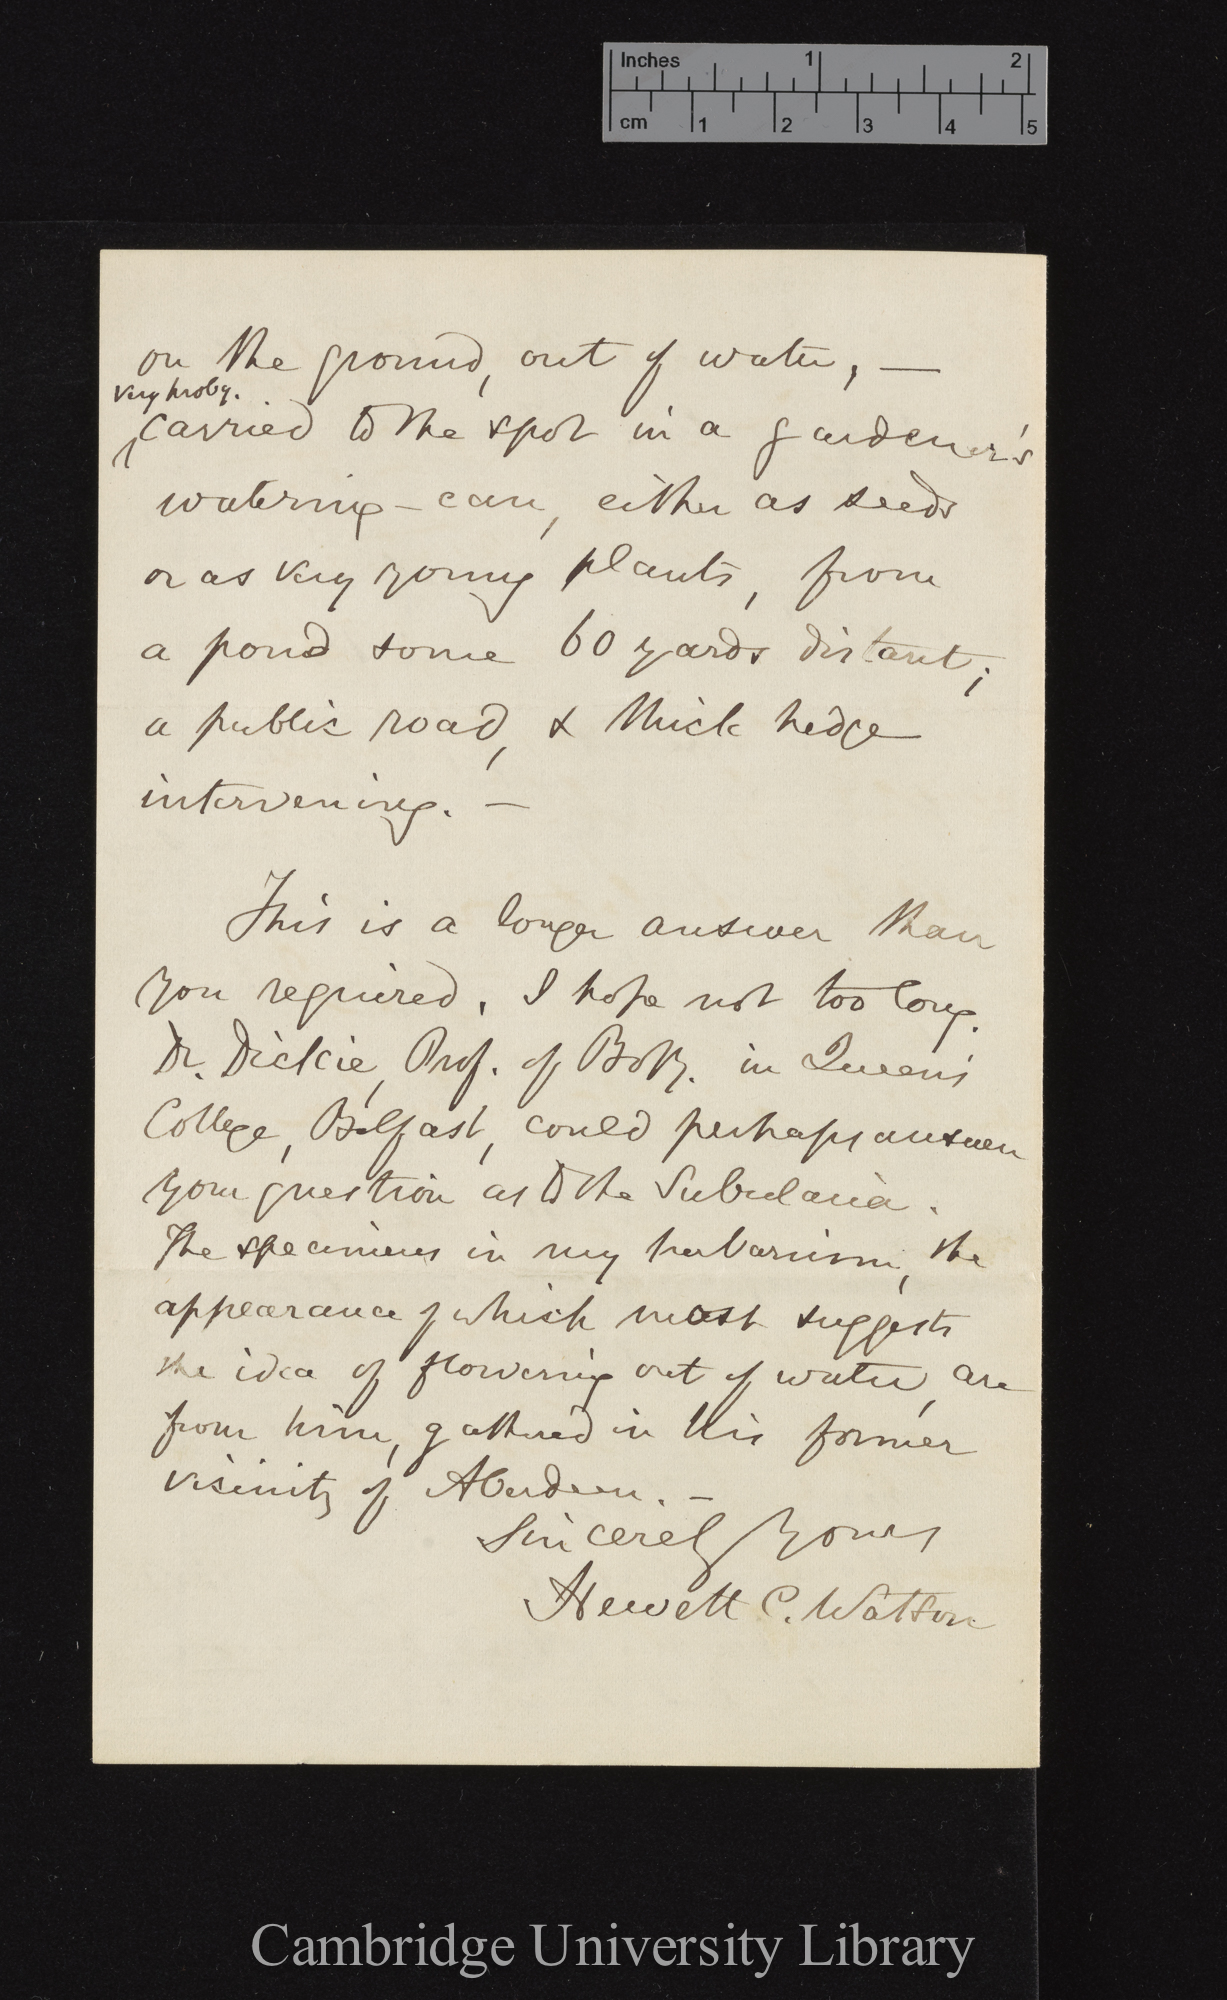 Inches 1 2
cm 1 2 3 4 5
on the ground, out of water, —
very proby.
carried to the spot in a gardener's
watering-can, either as seeds
or as very young plants, from
a pond some 60 yards distant;
a public road, & thick hedge
intervening. —
This is a longer answer than
you required. I hope not too long.
Dr. Dickie, Prof. of Boty. in Queen's
College, Belfast, could perhaps answer
your question as to the Subularia.
The specimens in my herbarium, the
appearance of which most suggests
the idea of flowering out of water, are
from him, gathered in his former
vicinity of Aberdeen. —
Sincerely Yours
Hewett C. Watson
Cambridge University Library